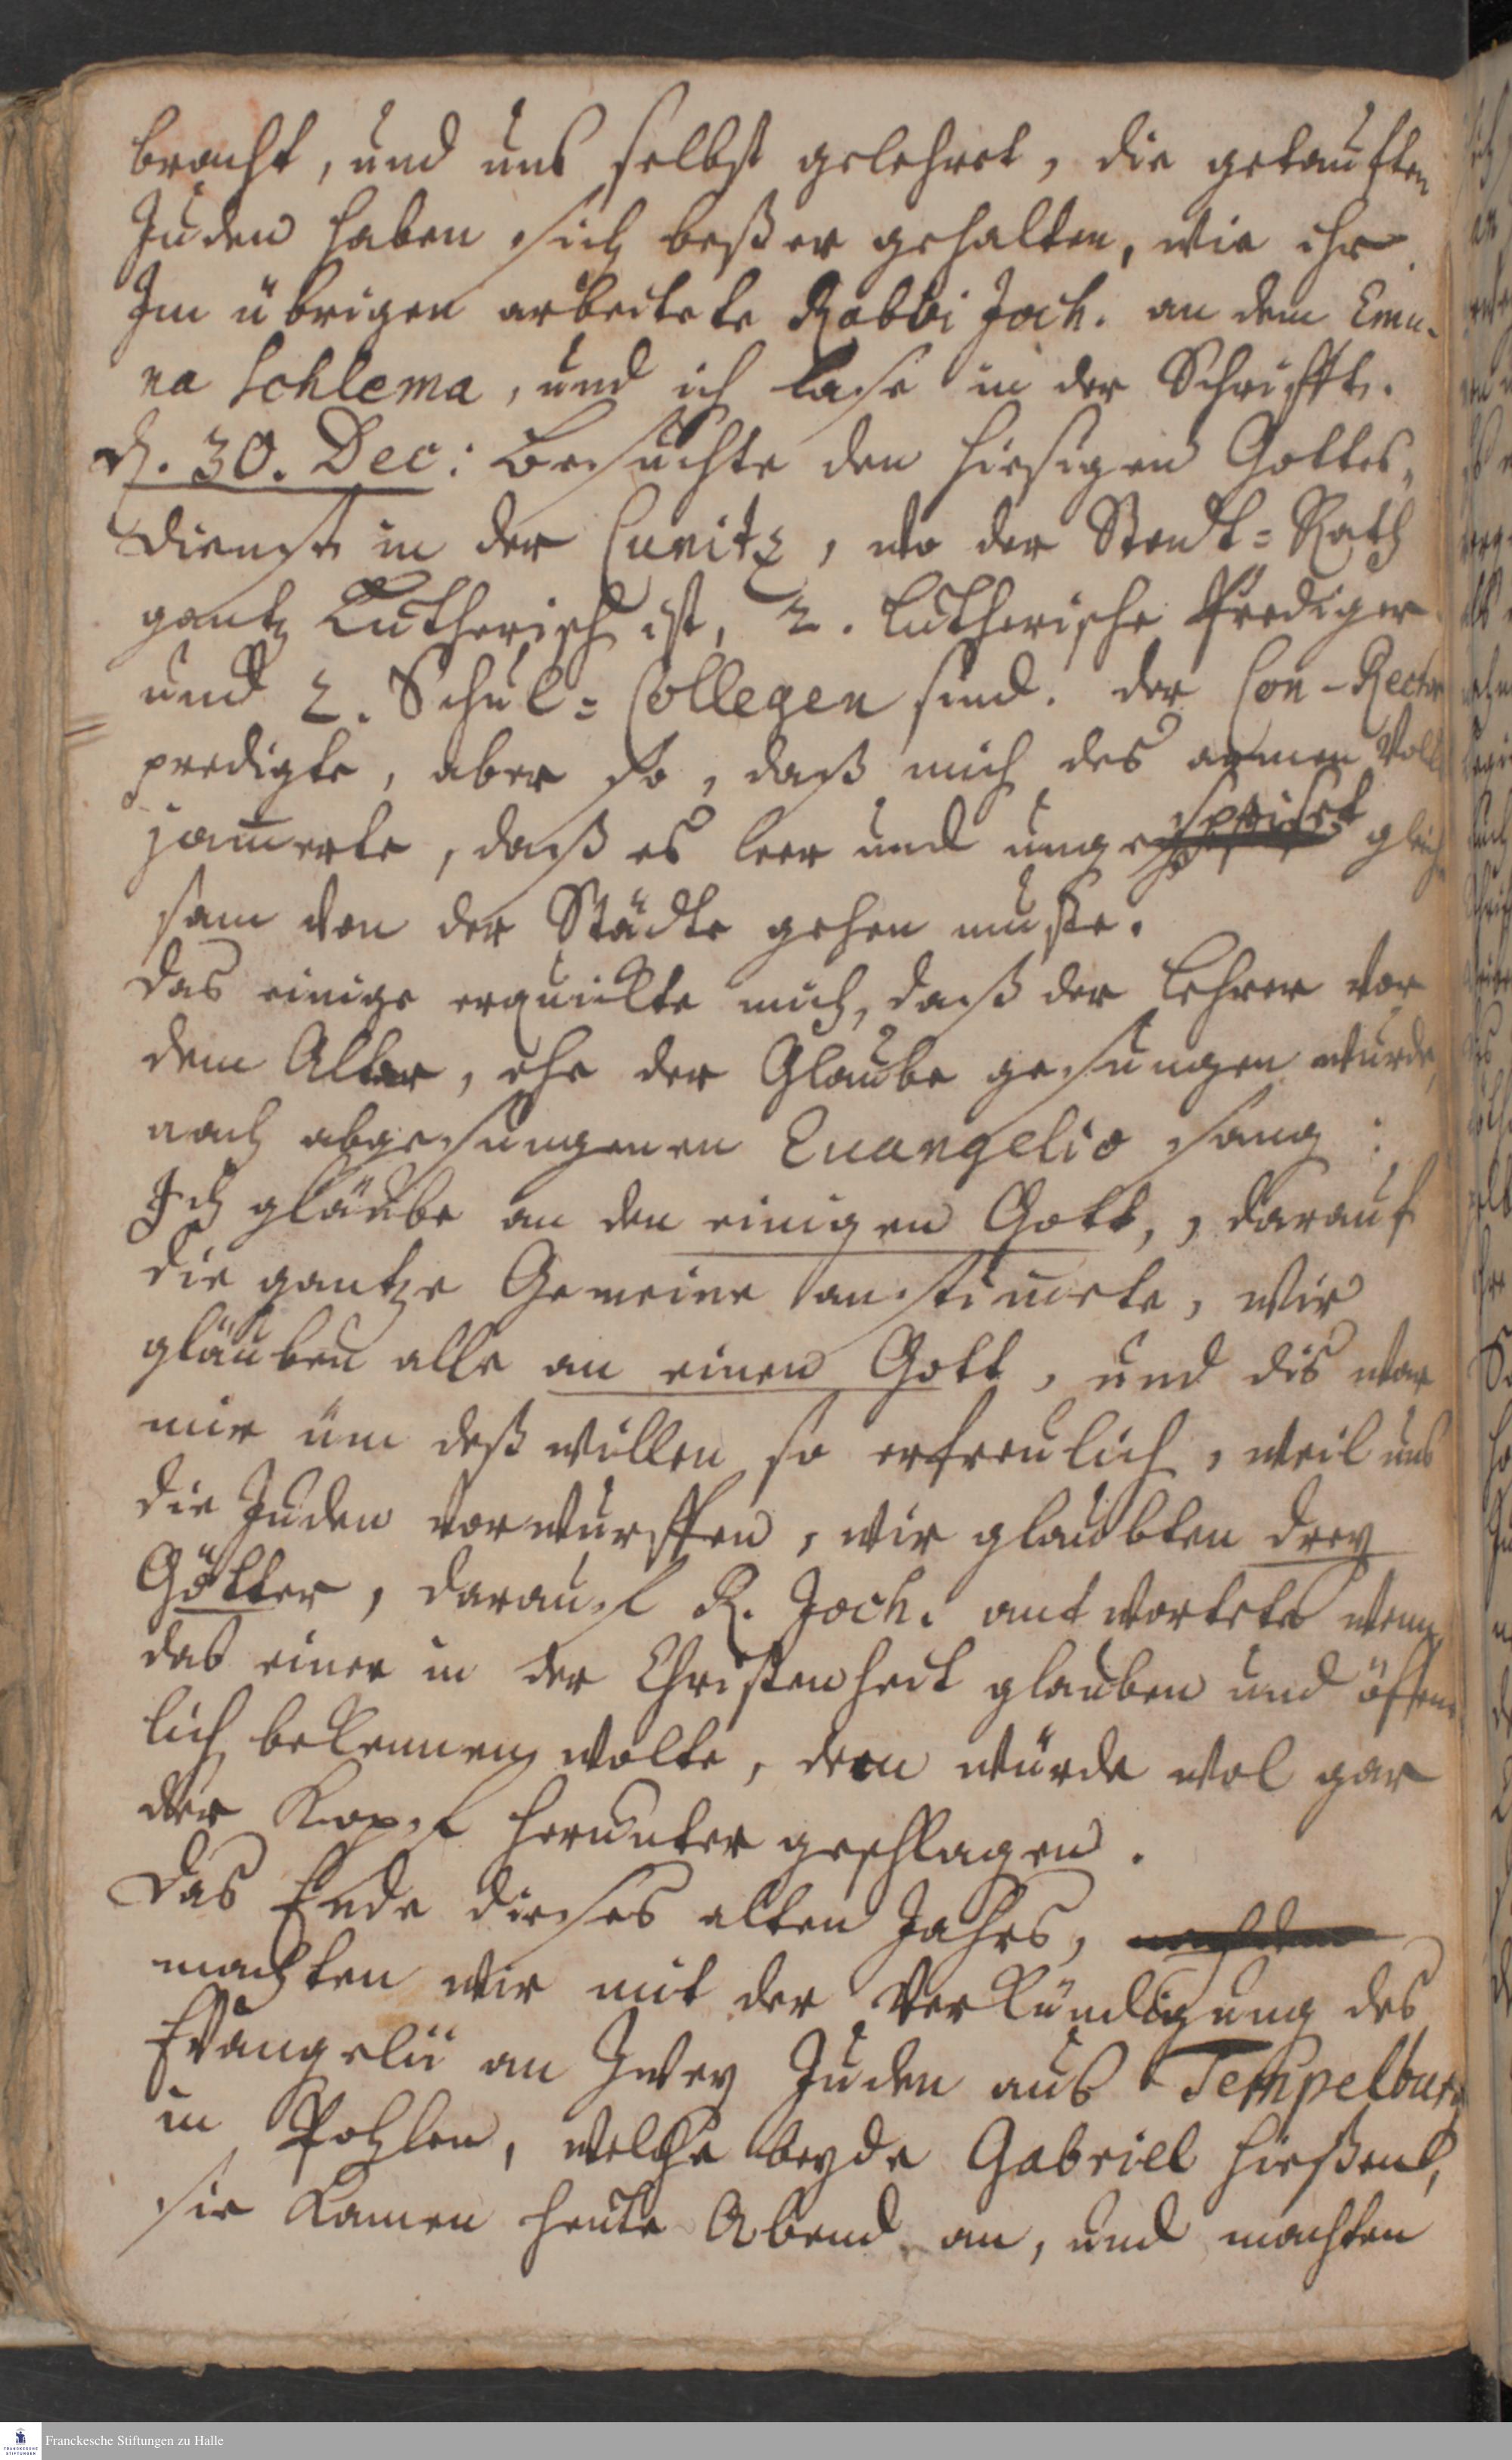 bracht, und uns selbst gelehret, die getauften
Juden haben sich beßer gehalten, wie ihr.
Im übrigen arbeitete Rabbi Joch. an dem Emu-
na Schlema, und ich lase in der Schrifft.
d. 30. Dec: besuchte den hiesigen Gottes-
dienst in der Cunitz, wo der Stadt-Rath
gantz Lutherisch ist, 2. lutherische Prediger
und 2. Schul-Collegen sind. der Con-Rector
predigte, aber so, daß mich des armen Volks
jam̅erte, daß es leer und ungespeiset gleich
sam von der Städte gehen muste.
das einige erquickte mich, daß der Lehrer vor
dem Altar, ehe der Glaube gesungen wurde,
nach abgesungenen Euangelio sang:
Ich gläube an den einigen Gott, darauf
die gantze Gemeine anstim̅ete, wir
gläuben alle an einen Gott, und dis war
mir üm deß willen so erfreulich, weil uns
die Juden vorwurffen, wir glaubten drey
Götter, darauf R. Joch. antwortete wenn
das einer in der Christenheit glauben und öffent
lich bekennen wolte, dem würde wol gar
der Kopf herunter geschlagen.
Das Ende dieses alten Jahrs, nachdem
machten wir mit der Verkündigung des
Evangelii an zwey Juden aus Tempelburg
in Pohlen, welche beyde Gabriel hießen,
sie kamen heute Abend an, und machten
Franckesche Stiftungen zu Halle